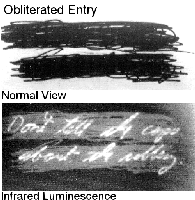 Obliterated Entry
Normal View
Don't tell the cops
about the killing
Infrared Luminescence